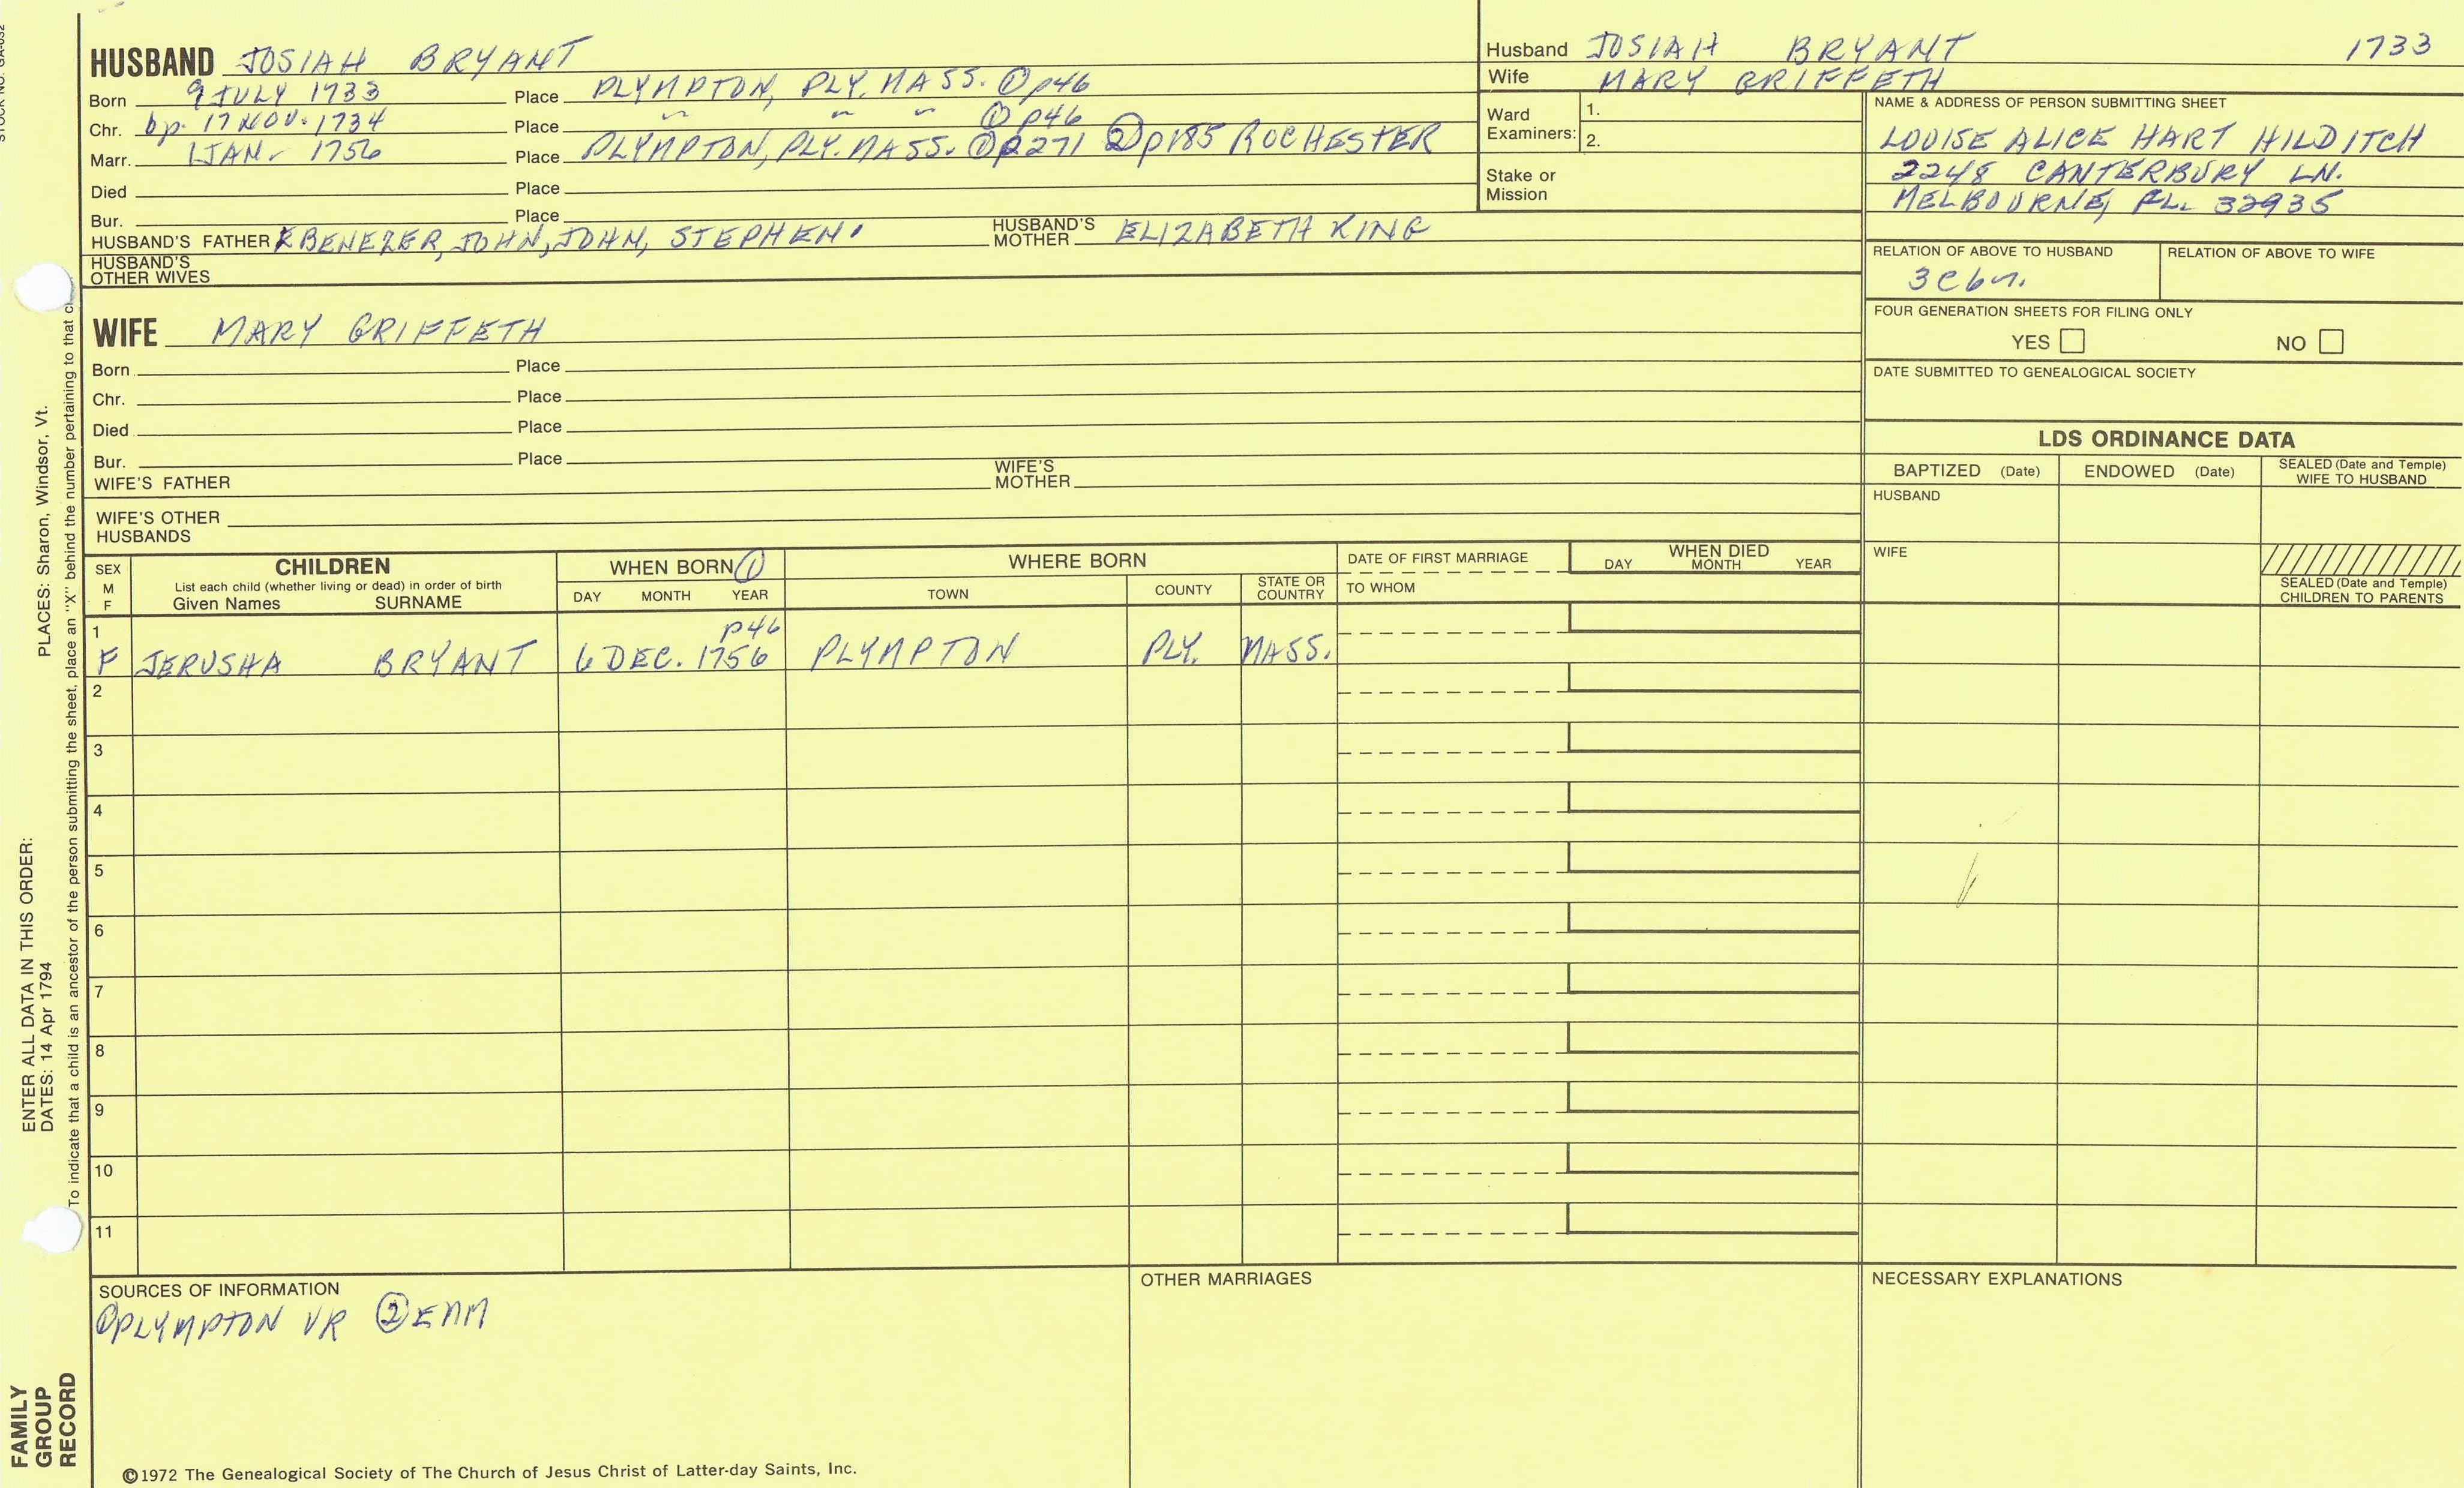 HUSBAND JOSIAH BRYANT
Born 9 JULY 1733 Place PLYMPTON, PLY. MASS. ① p46
Chr. bp. 17 NOV. 1734 Place " " " ① p46
Marr. 1 JAN. 1756 Place PLYMPTON, PLY. MASS. ① p271 ② p185 ROCHESTER
Died Place
Bur. Place
HUSBAND'S FATHER EBENEZER, JOHN, JOHN, STEPHEN. HUSBAND'S MOTHER ELIZABETH KING
HUSBAND'S OTHER WIVES
Husband JOSIAH BRYANT 1733
Wife MARY GRIFFETH
Ward Examiners: 1.
2.
Stake or Mission
NAME & ADDRESS OF PERSON SUBMITTING SHEET
LOUISE ALICE HART HILDITCH
2248 CANTERBURY LN.
MELBOURNE, FL. 32935
RELATION OF ABOVE TO HUSBAND RELATION OF ABOVE TO WIFE
3C6r.
FOUR GENERATION SHEETS FOR FILING ONLY
YES NO
DATE SUBMITTED TO GENEALOGICAL SOCIETY
WIFE MARY GRIFFETH
Born Place
Chr. Place
Died Place
Bur. Place
WIFE'S FATHER WIFE'S MOTHER
WIFE'S OTHER HUSBANDS
LDS ORDINANCE DATA
BAPTIZED (Date) ENDOWED (Date) SEALED (Date and Temple) WIFE TO HUSBAND
HUSBAND
WIFE
SEALED (Date and Temple) CHILDREN TO PARENTS
SEX M F
CHILDREN
List each child (whether living or dead) in order of birth
Given Names SURNAME
WHEN BORN ①
DAY MONTH YEAR
WHERE BORN
TOWN COUNTY STATE OR COUNTRY
DATE OF FIRST MARRIAGE
TO WHOM
WHEN DIED
DAY MONTH YEAR
1 p46
F JERUSHA BRYANT 6 DEC. 1756 PLYMPTON PLY. MASS.
2
3
4
5
6
7
8
9
10
11
SOURCES OF INFORMATION
① PLYMPTON VR ② EAM
OTHER MARRIAGES
NECESSARY EXPLANATIONS
©1972 The Genealogical Society of The Church of Jesus Christ of Latter-day Saints, Inc.
FAMILY GROUP RECORD
ENTER ALL DATA IN THIS ORDER:
DATES: 14 Apr 1794 PLACES: Sharon, Windsor, Vt.
To indicate that a child is an ancestor of the person submitting the sheet, place an "X" behind the number pertaining to that